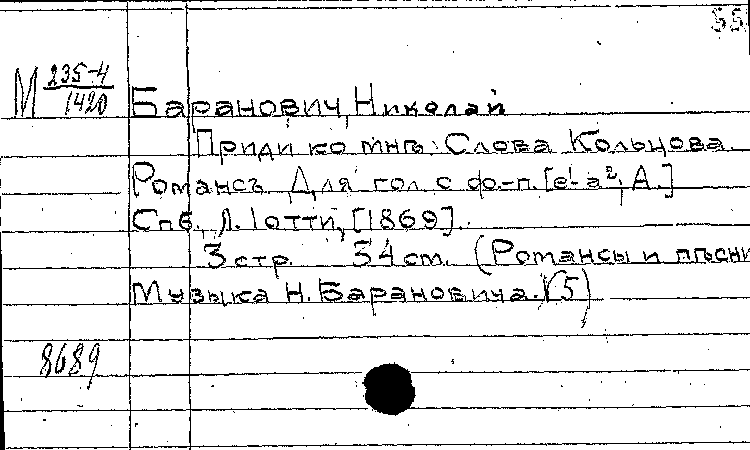 55
М 235-4/1420
Баранович, Николай
Приди ко мнѣ. Слова Кольцова.
Романсъ. Для гол. с ф.-п. [e¹-a², A.]
Спб., Л. Іотти, [1869].
3 стр. 34 см. (Романсы и пѣсни
Музыка Н. Барановича. 5)
8689